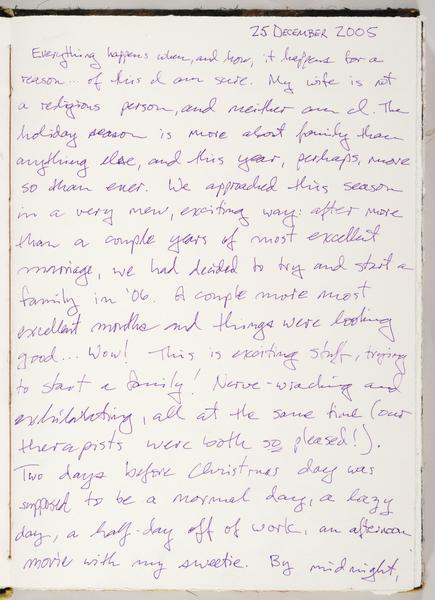 25 DECEMBER 2005
Everything happens when, and how, it happens for a
reason... of this I am sure. My wife is not
a religious person, and neither am I. The
holiday season is more about family than
anything else, and this year, perhaps, more
so than ever. We approached this season
in a very new, exciting way: after more
than a couple years of most excellent
marriage, we had decided to try and start a
family in '06. A couple more most
excellent months and things were looking
good... Wow! This is exciting stuff, trying
to start a family! Nerve-wracking and
exhilarating, all at the same time (our
therapists were both so pleased!).
Two days before Christmas day was
supposed to be a normal day, a lazy
day, a half-day off of work, an afternoon
movie with my sweetie. By midnight,